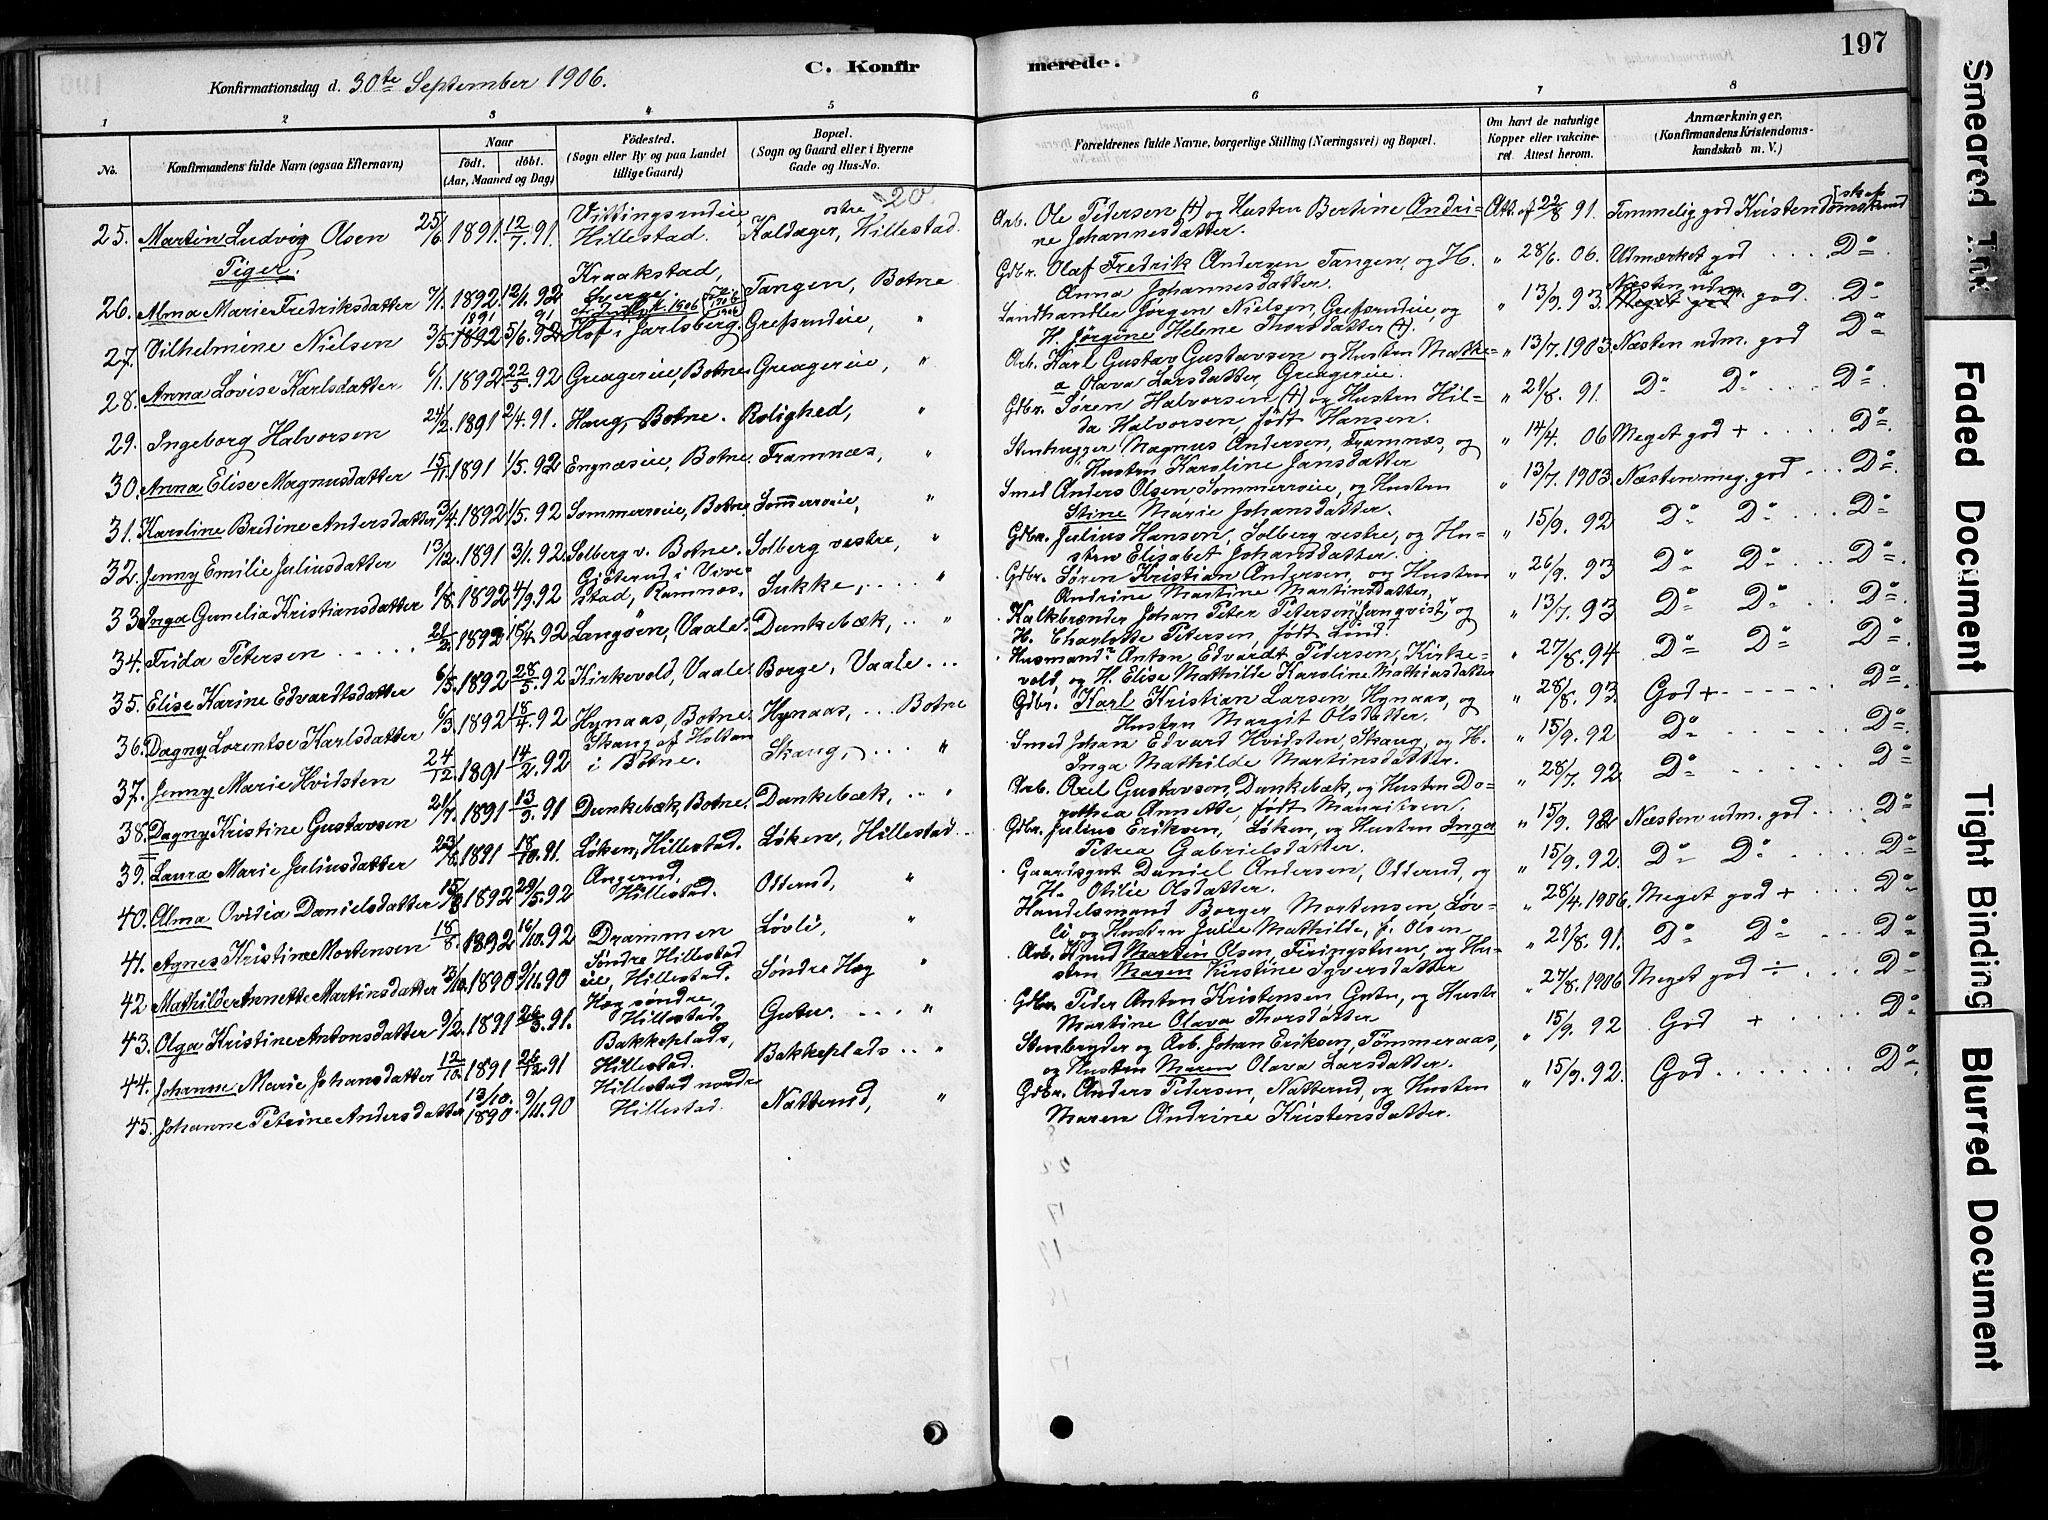 197
Konfirmationsdag d. 30te September 1906.
C. Konfirmerede.
1 2 3 4 5 6 7 8
No.
Konfirmandens fulde Navn (ogsaa Efternavn)
Naar
født. døbt.
(Aar, Maaned og Dag)
Fødested.
(Sogn eller By og paa Landet
tillige Gaard)
Bopæl.
(Sogn og Gaard eller i Byerne
Gade og Hus-No.
Forældrenes fulde Navne, borgerlige Stilling (Næringsvei) og Bopæl.
Om havt de naturlige
Kopper eller vakcine-
ret. Attest herom.
Anmærkninger,
(Konfirmandens Kristendoms-
kundskab m. V.)
20
25. Martin Ludvig Olsen 25/6 1891. 12/7. 91. Vittingsrudeie, Hillestad. Kaldager, østre Hillestad. Arb. Ole Pedersen (†) og Hustru Bertine Andri-
ne Johannesdatter. Att. af 22/8 91. Temmelig god Kristendomskundskab
Piger.
26. Alma Marie Fredriksdatter 7/1. 1892. 12/1. 92 Kraakstad, Tangen, Botne Gdbr. Olaf Fredrik Andersen Tangen, og H.
Anna Johannesdatter. " 28/6. 06. Udmærket god ... Do
27. Vilhelmine Nielsen 3/5. 1892 1891 5/6. 92 91 Hof i Jarlsberg. Grefsrudeie, " Landhandler Jörgen Nielsen, Grefsrudeie, og
H. Jörgine Helene Thorsdatter (†). " 13/9. 93. Meget god Næsten udm. god. Do
28. Anna Lovise Karlsdatter 6/1. 1892 22/5. 92 Greagereie, Botne Greagereie, " Arb. Karl Gustav Gustavsen og Hustru Mathe-
a Olava Larsdatter, Greagereie. " 13/7. 1903. Næsten udm. god Do
29. Ingeborg Halvorsen 24/2. 1891 2/4. 91. Haug, Botne. Rolighed, " Gdbr. Søren Halvorsen (†) og Hustru Hil-
da Halvorsen, født Hansen. " 21/8. 91. Do Do ... Do
30. Anna Elise Magnusdatter 15/11. 1891 1/5. 92 Engnæseie, Botne. Framnæs, " Stenhugger Magnus Andersen, Framnæs, og
Hustru Karoline Jansdatter " 14/4. 06 Meget god + ... Do
31. Karoline Bredine Andersdatter 3/4. 1892 1/5. 92 Sommerröeie, Botne. Sommerröeie, " Smed Anders Olsen Sommerröeie, og Hustru
Stine Marie Johansdatter. " 13/7. 1903. Næsten meg. god ... Do
32. Jenny Emilie Juliusdatter 13/12. 1891 3/1. 92 Solberg v. Botne. Solberg vestre, " Gdbr. Julius Hansen, Solberg vestre, og Hu-
stru Elisabet Johansdatter. " 15/9. 92 Do Do ... Do
33. Inga Gunelia Kristiansdatter 1/8. 1892 4/9. 92 Gisterud i Vive-
stad, Ramnæs. Sukke, ... " Gdbr. Søren Kristian Andersen, og Hustru
Andrine Martine Martinsdatter, " 26/9. 93 Do Do ... Do
34. Frida Petersen 21/2. 1892 15/4. 92 Langöen, Vaale. Dunkebæk, .. " Kalkbrænder Johan Peter Petersen "Junqvist", og
H. Charlotte Petersen, født Lind. " 13/7. 93 Do Do ... Do
35. Elise Karine Edvardtsdatter 6/5. 1892 28/5. 92 Kirkevold, Vaale Borge, Vaale ... Husmand Anton Edvardt Pedersen, Kirke-
vold, og H. Elise Mathilde Karoline Mathiasdatter " 27/8. 94 Do Do ... Do
36. Dagny Lorentse Karlsdatter 6/3 1892 18/4. 92 Hynaas, Botne. Hynaas, ... Botne Gdbr. Karl Kristian Larsen Hynaas, og
Hustru Margit Olsdatter. " 28/8. 93. God + ... Do
37. Jenny Marie Hvidsten 24/12. 1891 14/2. 92 Skaug af Holtan
i Botne. Skaug, ... " Smed Johan Edvard Hvidsten, Skaug, og H.
Inga Mathilde Martinsdatter. " 15/9. 92 Do ... Do
38. Dagny Kristine Gustavsen 21/7. 1891 13/9. 91 Dunkebæk, Botne. Dunkebæk, .. " Arb. Axel Gustavson, Dunkebæk, og Hustru Do-
rothea Annette, født Mauritsen. " 28/7. 92 Do ... Do
39. Laura Marie Juliusdatter 1891 18/10. 91. Løken, Hillestad. Løken, Hillestad .. Gdbr. Julius Eriksen, Løken, og Hustru Inga
Petrea Gabrielsdatter. " 15/9. 92 Næsten udm. god ... Do
40. Alma Ovidia Danielsdatter 1892 29/5. 92 Angerud,
Hillestad. Odderud, " Gaardsgut Daniel Andersen, Odderud, og
H. Otilie Olsdatter. " 15/9. 92 Do Do ... Do
41. Agnes Kristine Mortensen 18/8. 1892 16/10. 92 Drammen Løvli, " Handelsmand Borger Mortensen, Løv-
li, og Hustru Julie Mathilde, f. Olsen " 28/4. 1906. Meget god + ... Do
42 Mathilde Annette Martinsdatter 3/10. 1890 9/11. 90 Søndre Hillestad
eie, Hillestad. Søndre Høg " Arb. Knud Martin Olsen, Firingstuen, og Hu-
stru Maren Kirstine Syversdatter " 21/8. 91. Do Do ... Do
43. Olga Kristine Antonsdatter 9/2. 1891 91. Høg søndre,
Hillestad. Gutu. ... " Gdbr. Peder Anton Kristensen, Gutu, og Hustr
Martine Olava Thorsdatter " 27/8. 1906 Meget god ÷ ... Do
44. Johanne Marie Johansdatter 12/10. 1891 26/12. 91 Bakkeplads,
Hillestad. Bakkeplads .. " Stenbryder og Arb. Johan Eriksen, Tömmeraas,
og Hustru Maren Olava Larsdatter. " 15/9. 92 God + ... Do
45. Johanne Petrine Andersdatter 13/10. 1890 9/11. 90 Hillestad nordre
Hillestad. Natterud, " Gdbr. Anders Pedersen, Natterud, og Hustru
Maren Andrine Kristensdatter. " 15/9. 92. God ... Do
Smeared Ink
Faded Document
Tight Binding
Blurred Document